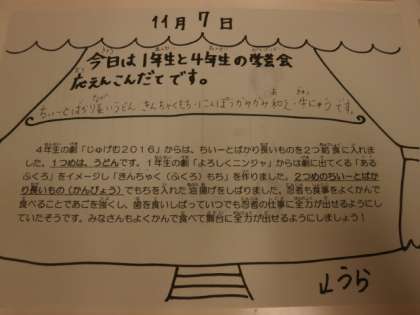 11月7日
今日は1年生と4年生の学芸会
応えんこんだてです。
ちぃーとばかり長いうどん きんちゃくもち・にんぽうかみかみ和え・牛にゅう です。
4年生の劇「じゅげむ2016」からは、ちぃーとばかり長いものを2つ給食に入れま
した。1つめは、うどんです。1年生の劇「よろしくニンジャ」からは劇に出てくる「ある
ふくろ」をイメージし「きんちゃく(ふくろ)もち」を作りました。2つめのちぃーとばか
り長いもの(かんぴょう)でもちを入れた油揚げをしばりました。忍者も食事をよくかんで
食べることであごを強くし、歯を食いしばっていつでも忍者の仕事に全力が出せるようにし
ていたそうです。みなさんもよくかんで食べて舞台に全力が出せるようにしましょう!
↓うら